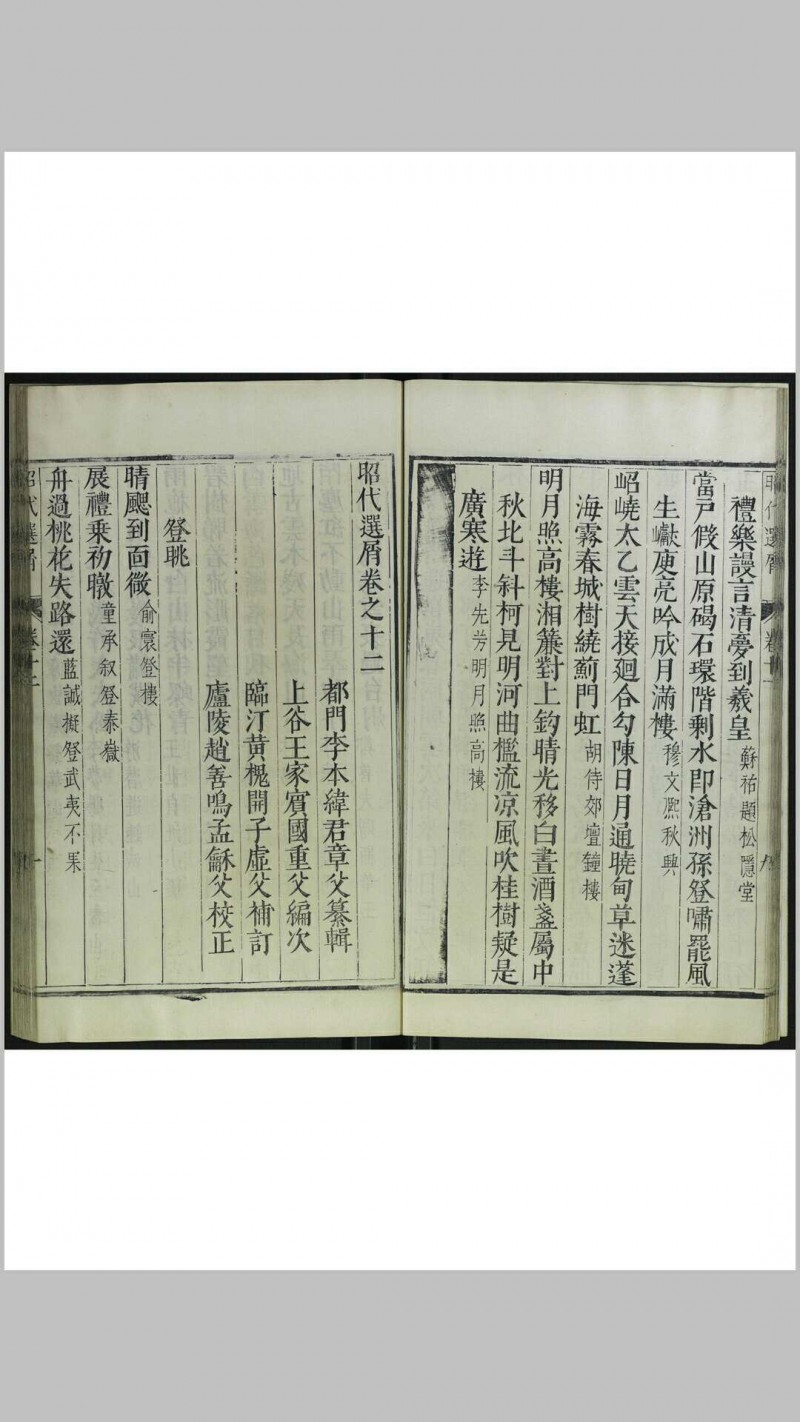 昭代選屑
卷十一
九
禮樂謾言清夢到羲皇 蘇祐題松隱堂
當戸假山原碣石環階剰水即滄洲孫登嘯罷風
生巘庾亮吟成月滿樓 穆文熙秋興
岧嶢太乙雲天接廻合勾陳日月通曉甸草迷蓬
海霧春城樹繞薊門虹 胡侍郊壇鐘樓
明月照高樓湘簾對上鈎晴光移白晝酒盞屬中
秋北斗斜柯見明河曲檻流凉風吹桂樹疑是
廣寒遊 李先芳明月照高樓
昭代選屑卷之十二
都門李本緯君章父纂輯
上谷王家賓國重父編次
臨汀黃槐開子虛父補訂
廬陵趙善鳴孟龢父校正
登眺
晴颸到面微 俞寰登樓
展禮乗初暾 童承叙登泰嶽
舟過桃花失路還 藍誠擬登武夷不果
昭代選屑
卷十二
一